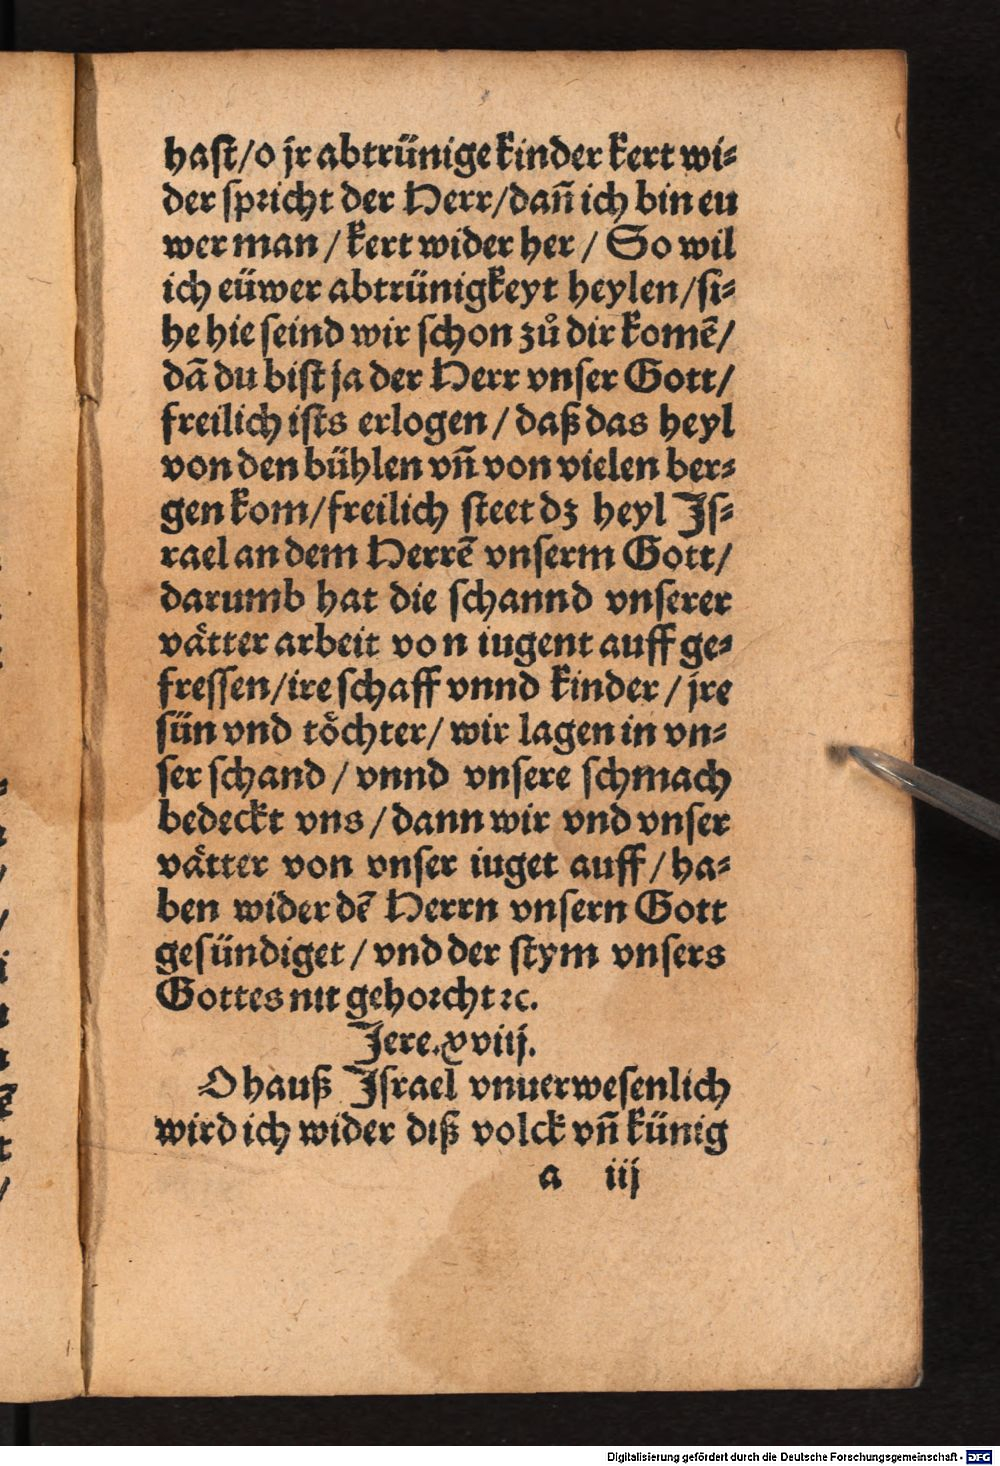 hast/o jr abtrünige kinder kert wi⸗
der spricht der Herr/dañ ich bin eu
wer man / kert wider her / So wil
ich eüwer abtrünigkeyt heylen/si⸗
he hie seind wir schon zů dir komẽ/
dã du bist ja der Herr vnser Gott/
freilich ists erlogen / daß das heyl
von den bühlen vñ von vielen ber⸗
gen kom/freilich steet dz heyl Js⸗
rael an dem Herrẽ vnserm Gott/
darumb hat die schannd vnserer
vaͤtter arbeit von iugent auff ge⸗
fressen/ire schaff vnnd kinder / jre
sün vnd toͤchter/ wir lagen in vn⸗
ser schand / vnnd vnsere schmach
bedeckt vns / dann wir vnd vnser
vaͤtter von vnser iuget auff / ha⸗
ben wider dẽ Herrn vnsern Gott
gesündiget / vnd der stym vnsers
Gottes nit gehorcht ꝛc.
Jere.xviij.
O hauß Israel vnuerwesenlich
wird ich wider diß volck vñ künig
a iij
Digitalisierung gefördert durch die Deutsche Forschungsgemeinschaft - DFG